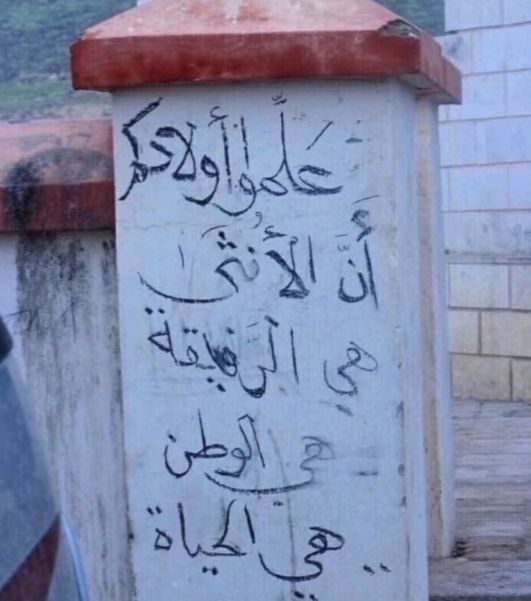 عَلِّموا أولادكم
أنَّ الأُنثى
هي الرَّفيقة
هي الوطن
.. هي الحياة